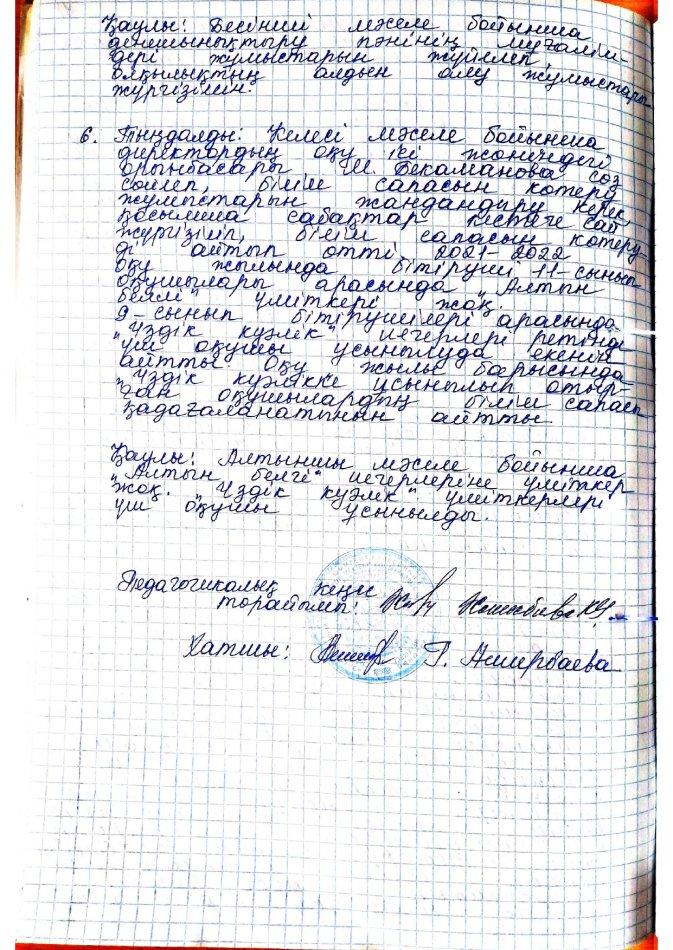 Қаулы: Бесінші мәселе бойынша
денешынықтыру пәнінің мұғалім-
дері жұмыстарын жүйелеп,
олқылықтың алдын алу жұмыстары
жүргізілсін.
6. Тыңдалды: Келесі мәселе бойынша
директордың оқу ісі жөніндегі
орынбасары Ш. Бекаманова сөз
сөйлеп, білім сапасын көтеру
жұмыстарын жандандыру керек
қосымша сабақтар кестеге сай
жүргізіліп, білім сапасын көтеру-
ді айтып өтті. 2021-2022
оқу жылында бітіруші 11-сынып
оқушылары арасында "Алтын
белгі" үміткері жоқ.
9-сынып бітірушілері арасында
"Үздік куәлік" иегерлері ретінде
үш оқушы ұсынылуда екенін
айтты. Оқу жылы барысында
"Үздік куәлікке ұсынылып отыр-
ған оқушылардың білім сапасы
қадағаланатынын айтты.
Қаулы: Алтыншы мәселе бойынша
"Алтын белгі" иегерлеріне үміткер
жоқ. "Үздік куәлік" үміткерлері
үш оқушы ұсынылды.
Педагогикалық кеңес
төрайымы:
Хатшы: Г. Аширбаева